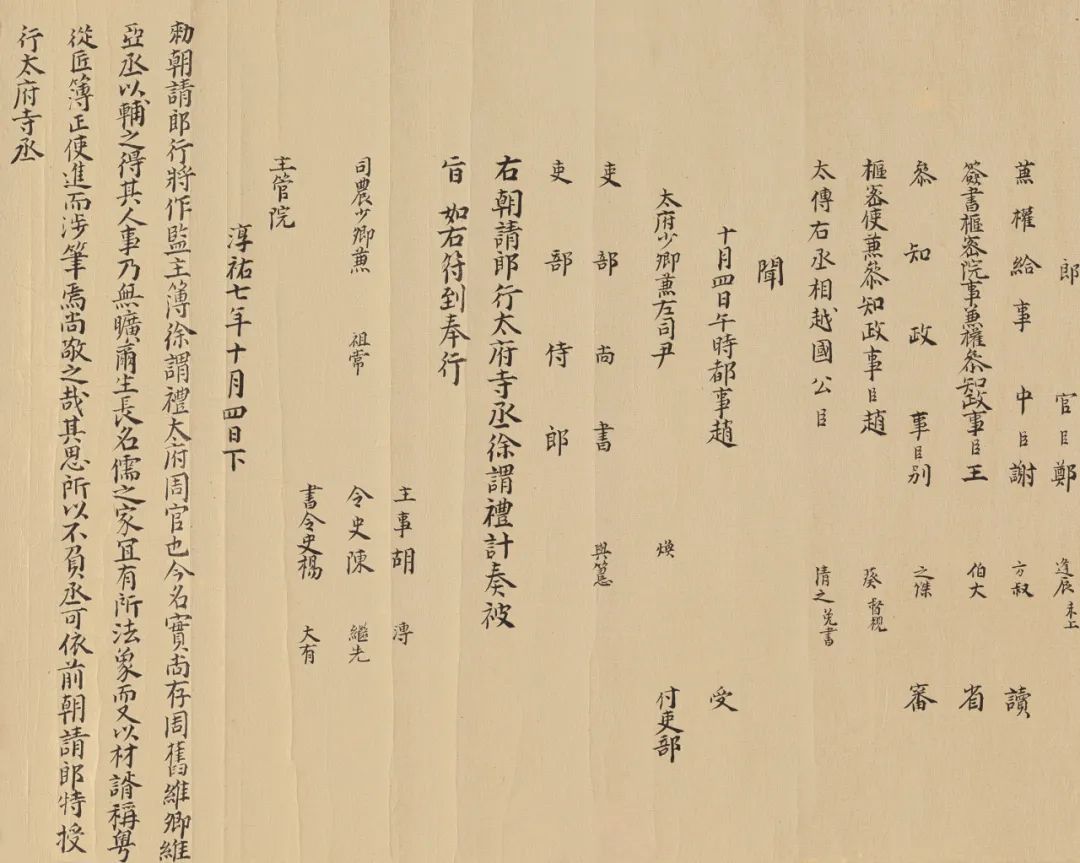 郎官臣鄭逢辰未上
兼權給事中臣謝方叔讀
簽書樞密院事兼權叅知政事臣王伯大省
叅知政事臣别之傑審
樞密使兼叅知政事臣趙葵督視
太傅右丞相越國公臣清之免書
聞
十月四日午時都事趙受
太府少卿兼左司尹煥付吏部
吏部尚書與𥲅
吏部侍郎
右朝請郎行太府寺丞徐謂禮計奏被
旨如右符到奉行
主事胡漙
司農少卿兼祖常令史陳繼先
書令史楊大有
主管院
淳祐七年十月四日下
勑朝請郎行將作監主簿徐謂禮太府周官也今名實尚存周舊維卿維
亞丞以輔之得其人事乃無曠爾生長名儒之家冝有所法象而又以材諝稱粤
從匠簿正使進而涉筆焉尚敬之哉其思所以不負丞可依前朝請郎特授
行太府寺丞